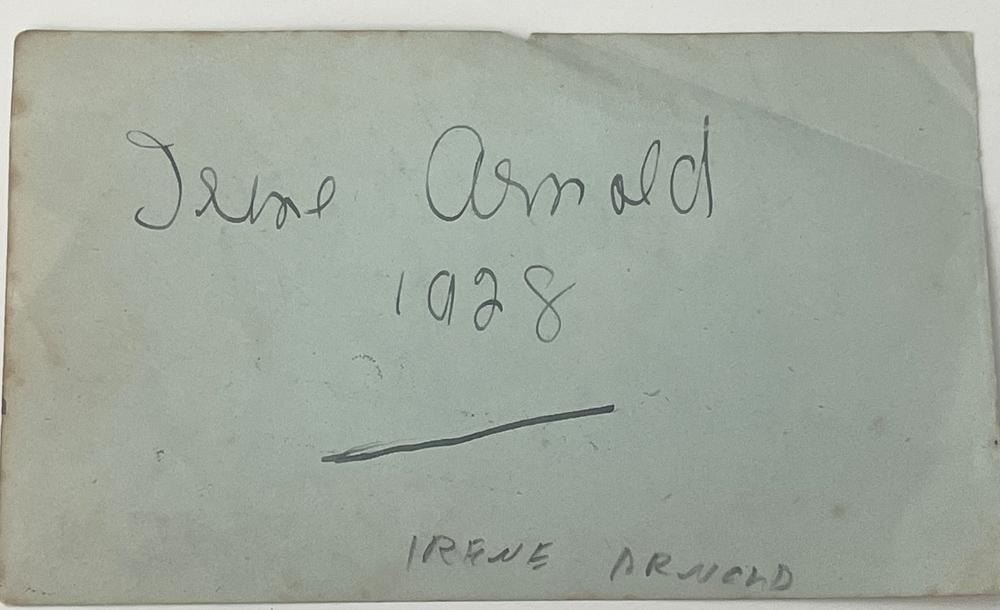 Irene Arnold
1928
IRENE ARNOLD